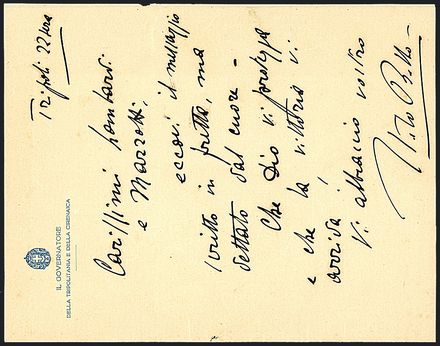 IL GOVERNATORE
DELLA TRIPOLITANIA E DELLA CIRENAICA
Tripoli 22 sera
Carissimi Lombardi
e Mazzotti,
eccovi il messaggio
scritto in fretta, ma
dettato dal cuore -
Che Dio vi protegga
e che la vittoria vi
arrida!
Vi abbraccio vostro
Italo Balbo